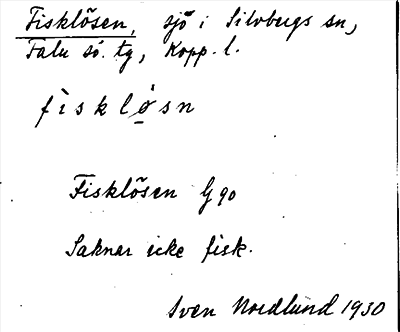 Fisklösen, sjö i Silvbergs sn,
Falu sö. tg, Kopp. l.
fìsklø̀sn
Fisklösen G 90
Saknar icke fisk.
Sven Nordlund 1930